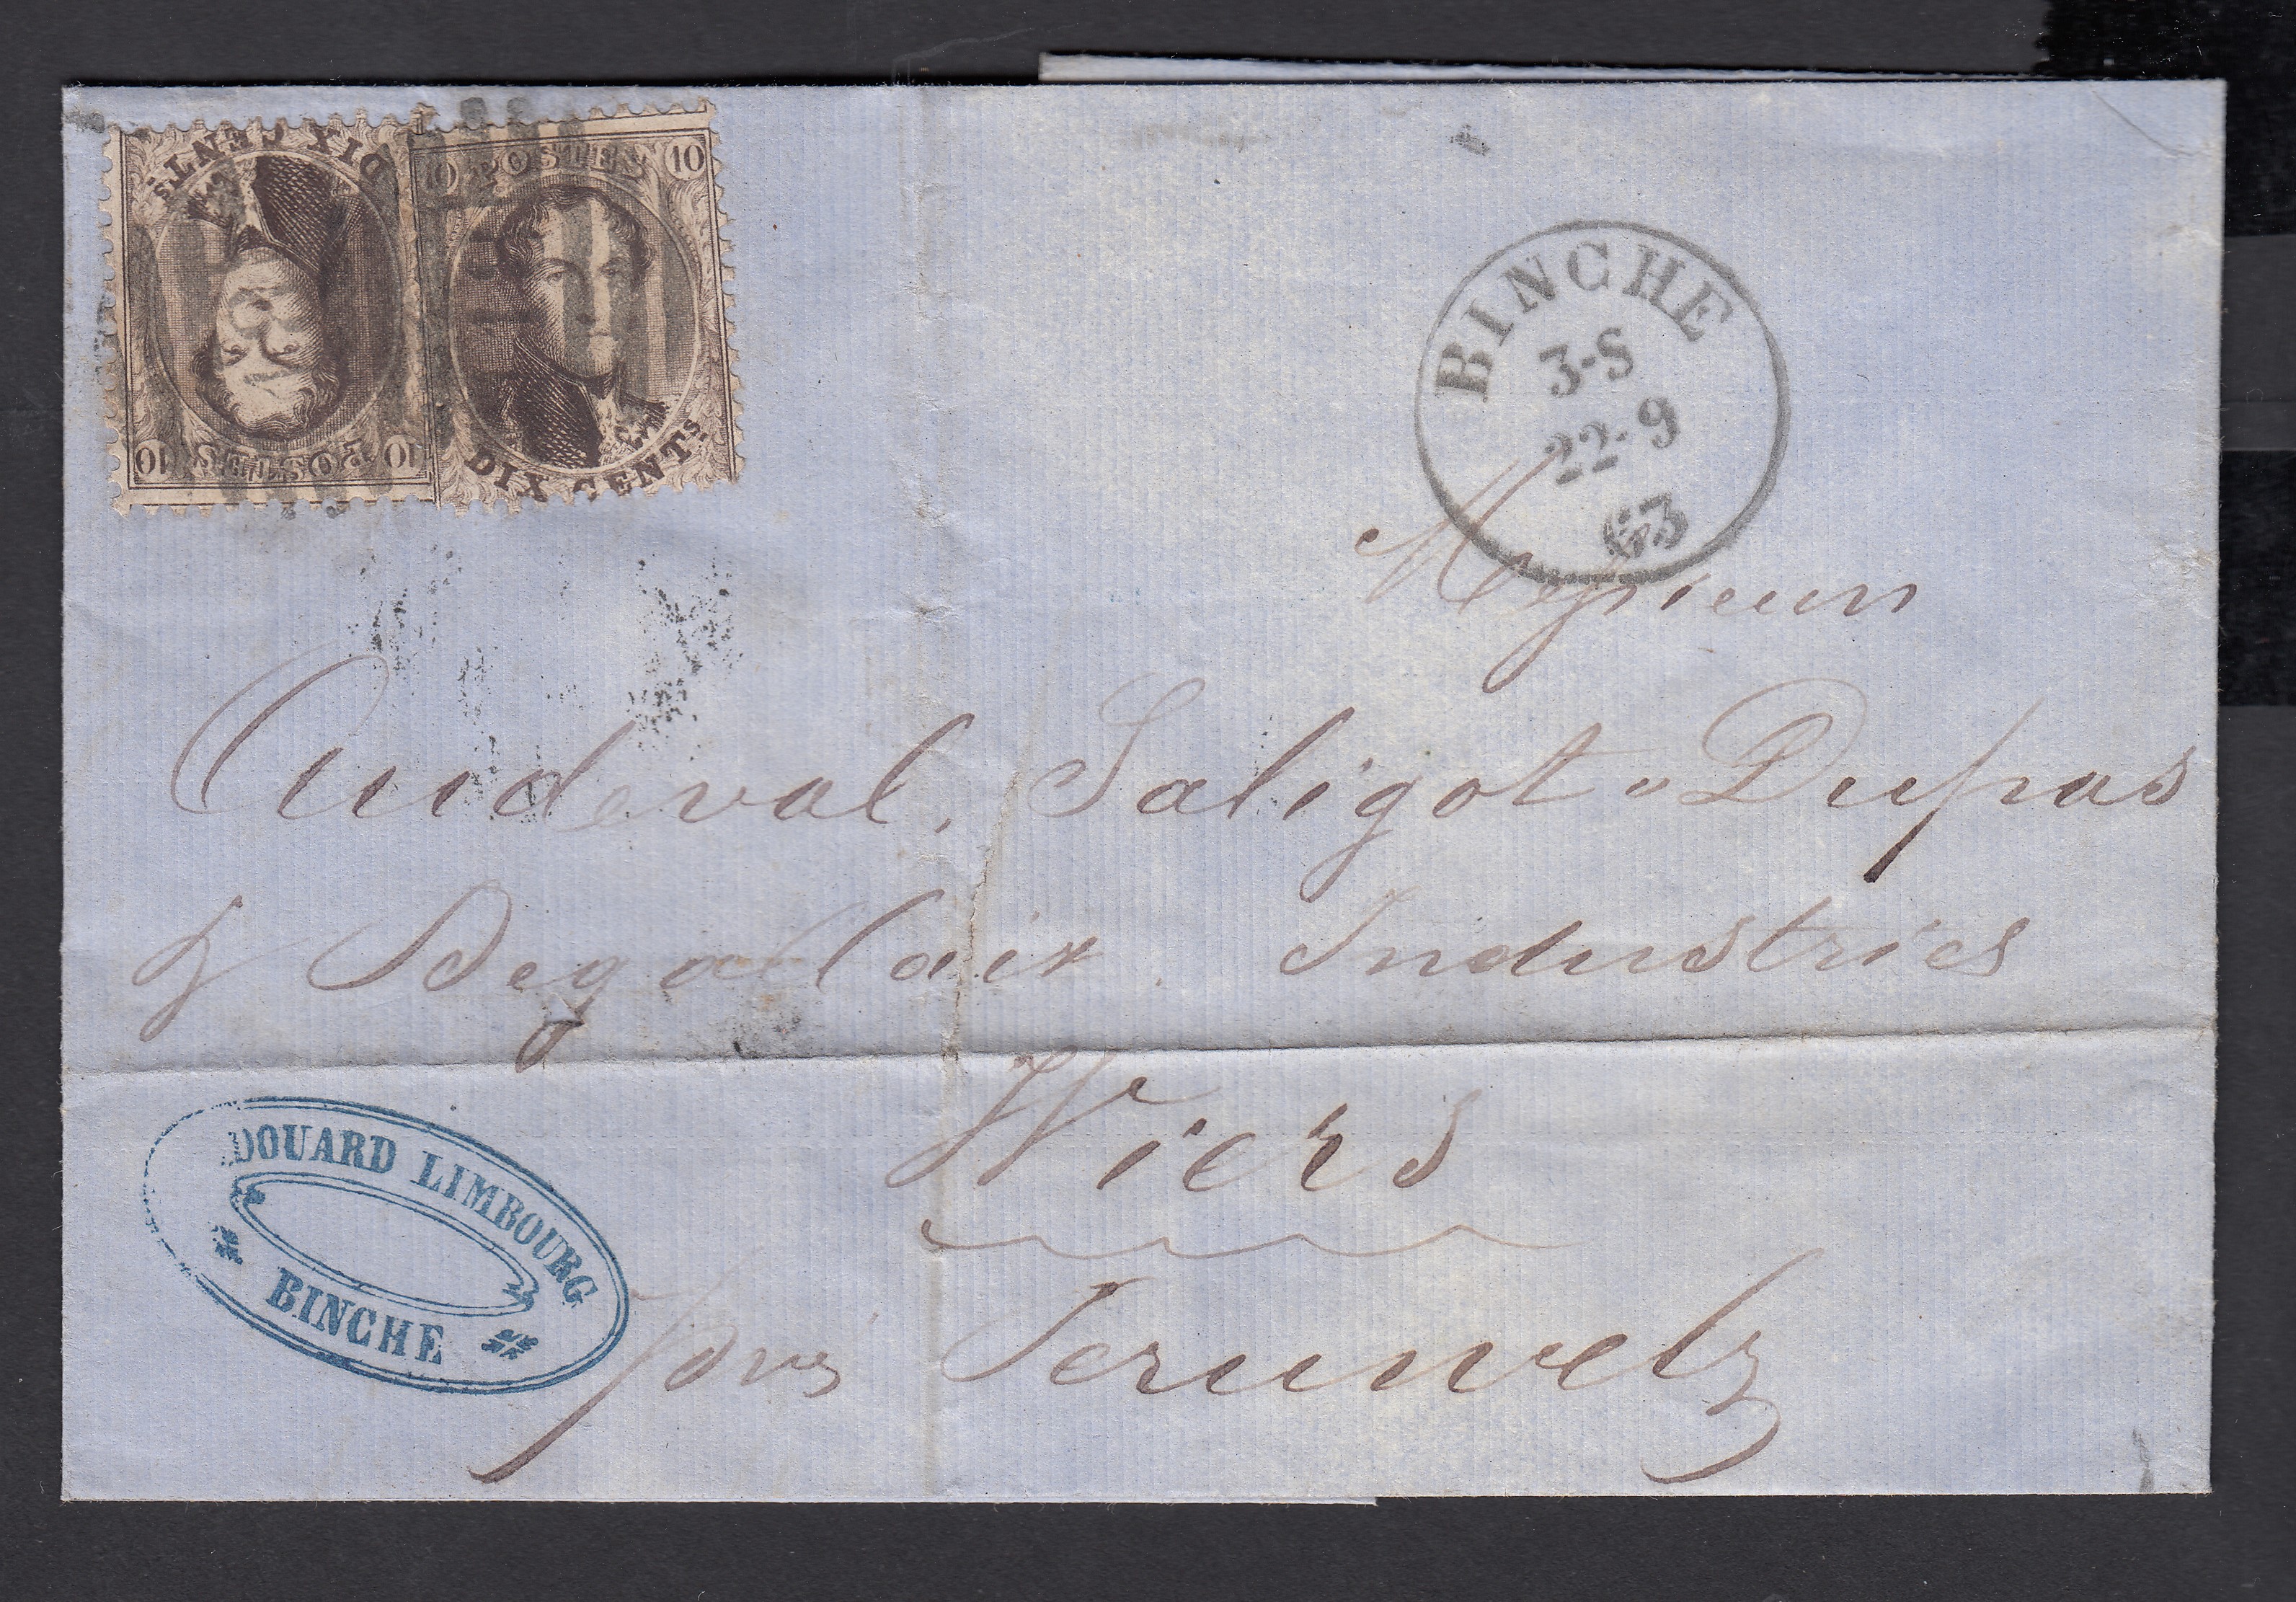 DIX CENTS
10 POSTES 10
10 POSTES 10
DIX CENTs.
BINCHE
3-S
22-9
63
Messieurs
Oudeval, Saligot-Dupas
& Degallaix Industriels
Wiers
DOUARD LIMBOURG
BINCHE
par Peruwelz